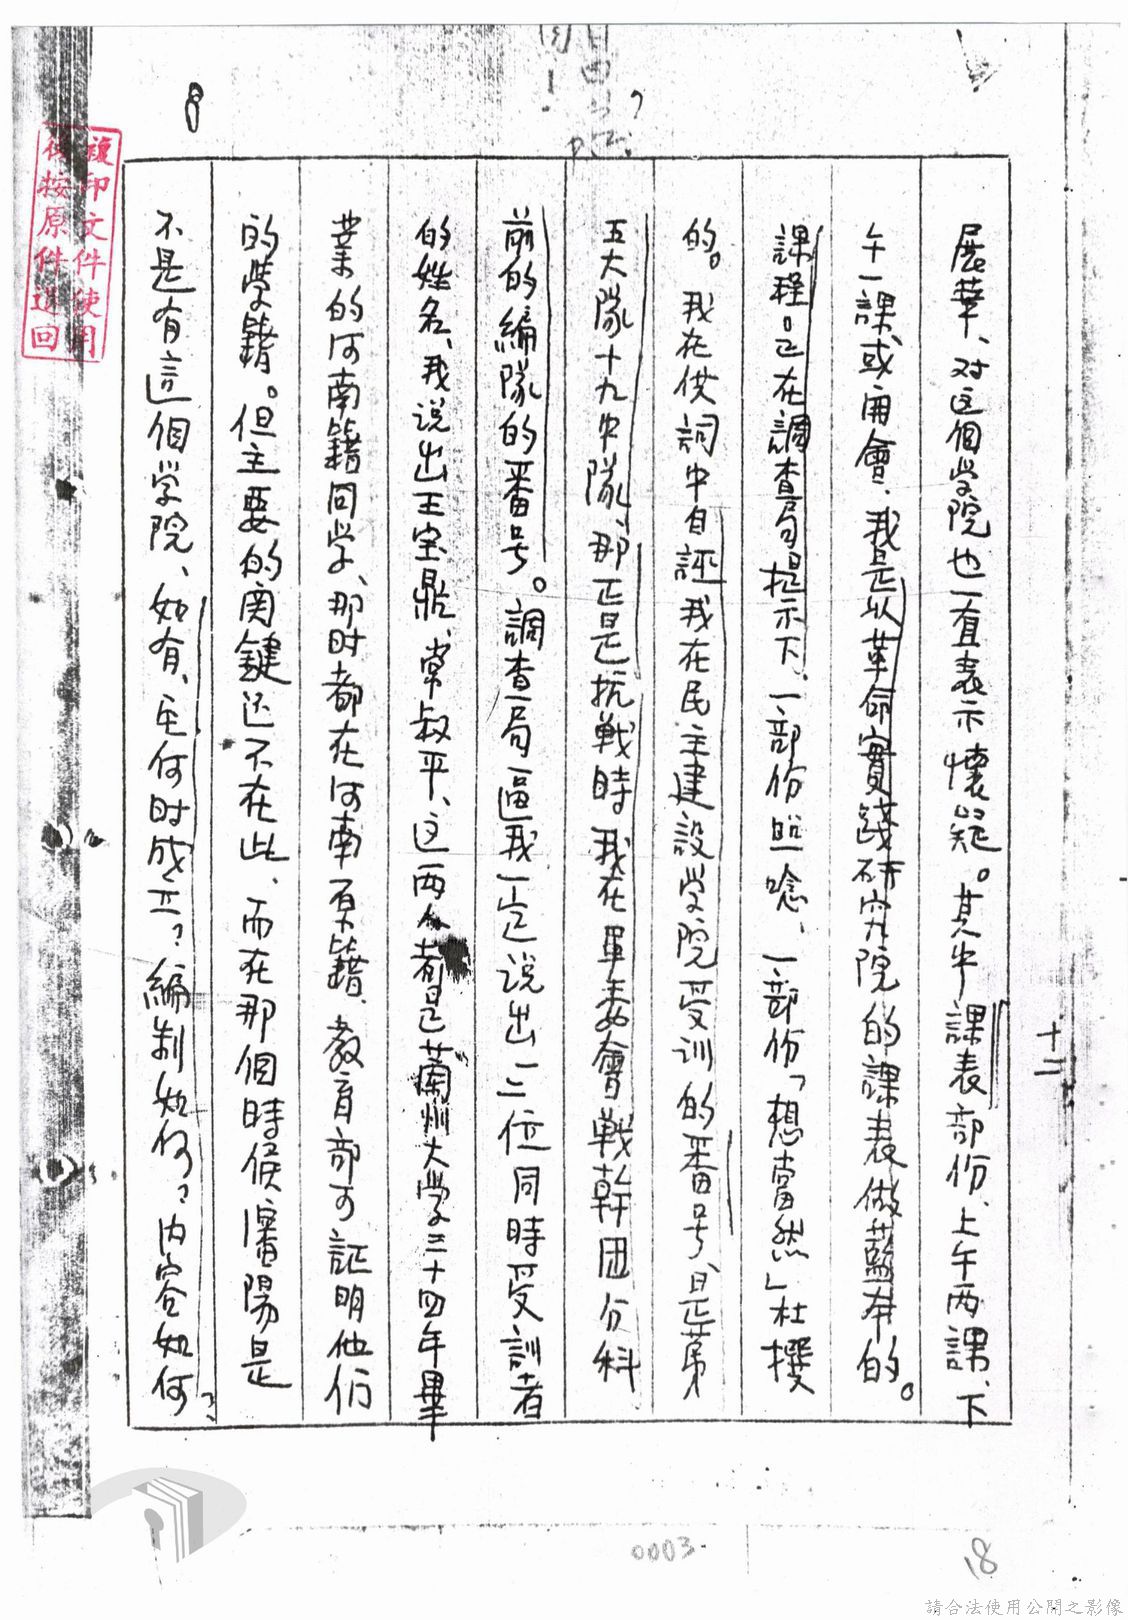 十二
展華、对这個学院也一直表示懷疑。其中課表部份、上午两課、下
午一課、或開會、我是以革命實踐研究院的課表做藍本的。
課程是在調查局提示下、一部份照唸、一部份「想當然」杜撰
的。我在供詞中自誣我在民主建設学院受训的番号、是第
五大隊十九中隊、那正是抗戰時我在軍委會戰幹团分科
前的編隊的番号。調查局逼我一定说出一二位同時受訓者
的姓名、我说出王宝鼎、常叔平、这两人都是蘭州大学三十四年畢
業的河南籍同学、那时都在河南原籍、教育部可証明他们
的学籍。但主要的関鍵还不在此、而在那個時候瀋陽是
不是有這個学院、如有、它何时成立？編制如何？内容如何？
複印文件使用
後按原件退回
0003
18
請合法使用公開之影像